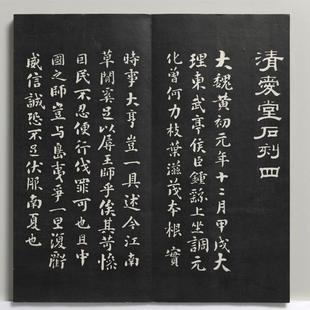 清愛堂石刻四
大魏黃初元年十二月甲戌大
理東武亭侯臣鍾繇上坐調元
化曾何力枝葉滋茂本根實
時事大專豈一具述今江南
草閒奚足以辱王師乎俟其苛慘
自民不忍便行伐罪可也且中
國之師豈与島夷爭一里
威信誠恐不足伏服南夏也